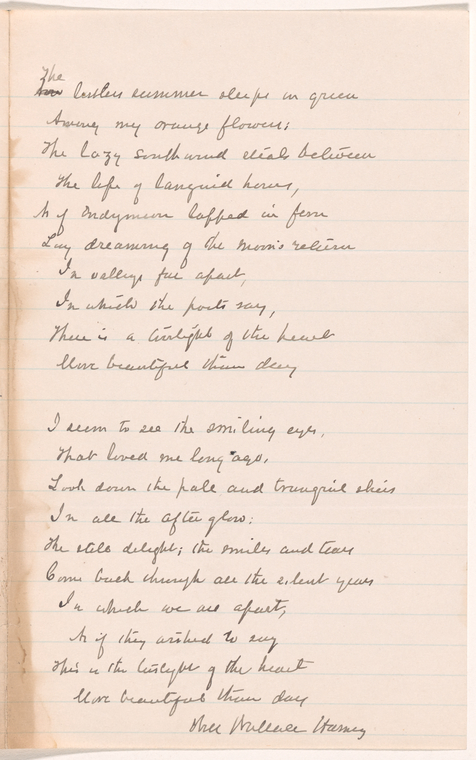 The
listless summer sleeps in green
Among my orange flowers;
The lazy southwind steals between
The lips of languid hours,
As if Endymion lapped in fern
Lay dreaming of the moon's return
In valleys far apart,
In which the poets say,
There is a twilight of the heart
More beautiful than day
I seem to see the smiling eyes,
That loved me long ago,
Look down the pale and tranquil skies
In all the after glow:
The still delight; the smiles and tears
Come back through all the silent years
In which we are apart,
As if they wished to say
This is the twilight of the heart
More beautiful than day
Will Wallace Harney